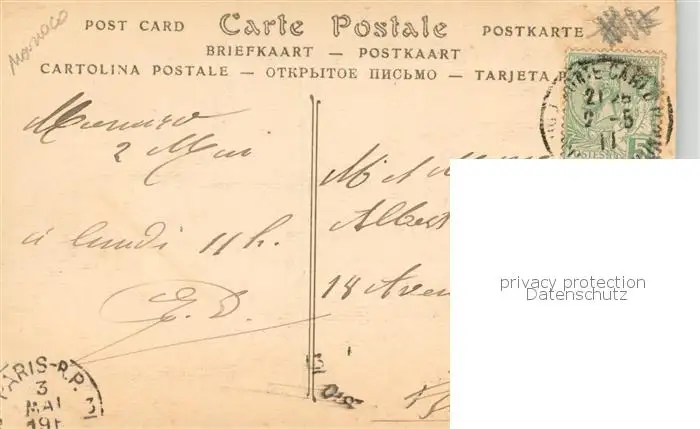 Monaco
POST CARD Carte Postale POSTKARTE
BRIEFKAART — POSTKAART
CARTOLINA POSTALE — ОТКРЫТОЕ ПИСЬМО — TARJETA P
MONTE CARLO
21
2 -5
11
POSTES
5
Monaco
2 Mai
à lundi 11 h.
E. D.
M
Albert
18 Aven
privacy protection
Datenschutz
PARIS-R.P.
3
MAI
191
3